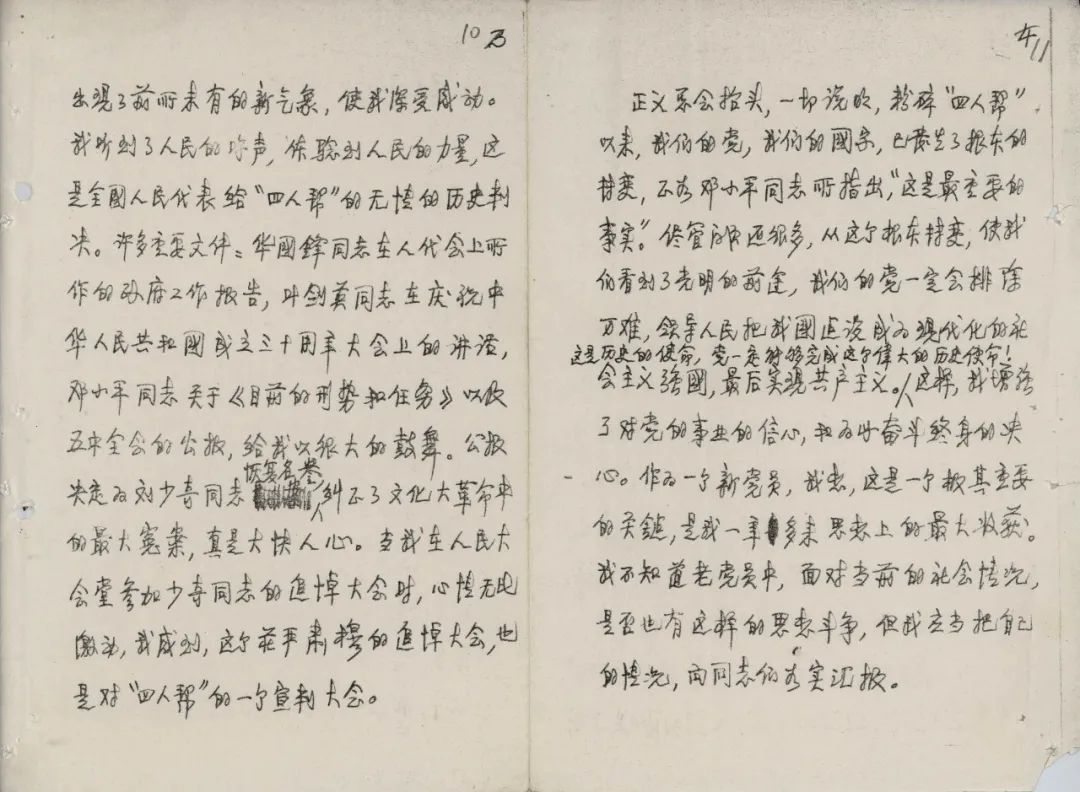 10
出现了前所未有的新气象，使我深受感动。
我听到了人民的呼声，体验到人民的力量，这
是全國人民代表给“四人帮”的无情的历史判
决。许多重要文件：华國鋒同志在人代会上所
作的政府工作报告，叶剑英同志在庆祝中
华人民共和國成立三十周年大会上的讲话，
邓小平同志关于《目前的形势和任务》以及
五中全会的公报，给我以很大的鼓舞。公报
恢复名誉
决定为刘少奇同志纠正了文化大革命中
的最大冤案，真是大快人心。当我在人民大
会堂参加少奇同志的追悼大会时，心情无比
激动，我感到，这个庄严肃穆的追悼大会，也
是对“四人帮”的一个宣判大会。
11
正义终会抬头，一句说的，粉碎“四人帮”
以来，我们的党，我们的國家，已发生了根本的
转变，正如邓小平同志所指出，“这是最重要的
事实”。尽管问题还很多，从这个根本转变，使我
们看到了光明的前途，我们的党一定会排除
万难，领导人民把我國建设成为现代化的社
这是历史的使命，党一定能够完成这个偉大的历史使命！
会主义强國，最后实现共产主义。这样，我增强
了对党的事业的信心，和为此奋斗终身的决
心。作为一个新党员，我想，这是一个极其重要
的关键，是我一年多来思想上的最大收获。
我不知道老党员中，面对当前的社会情况，
是否也有这样的思想斗争，但我应当把自己
的情况，向同志们如实汇报。